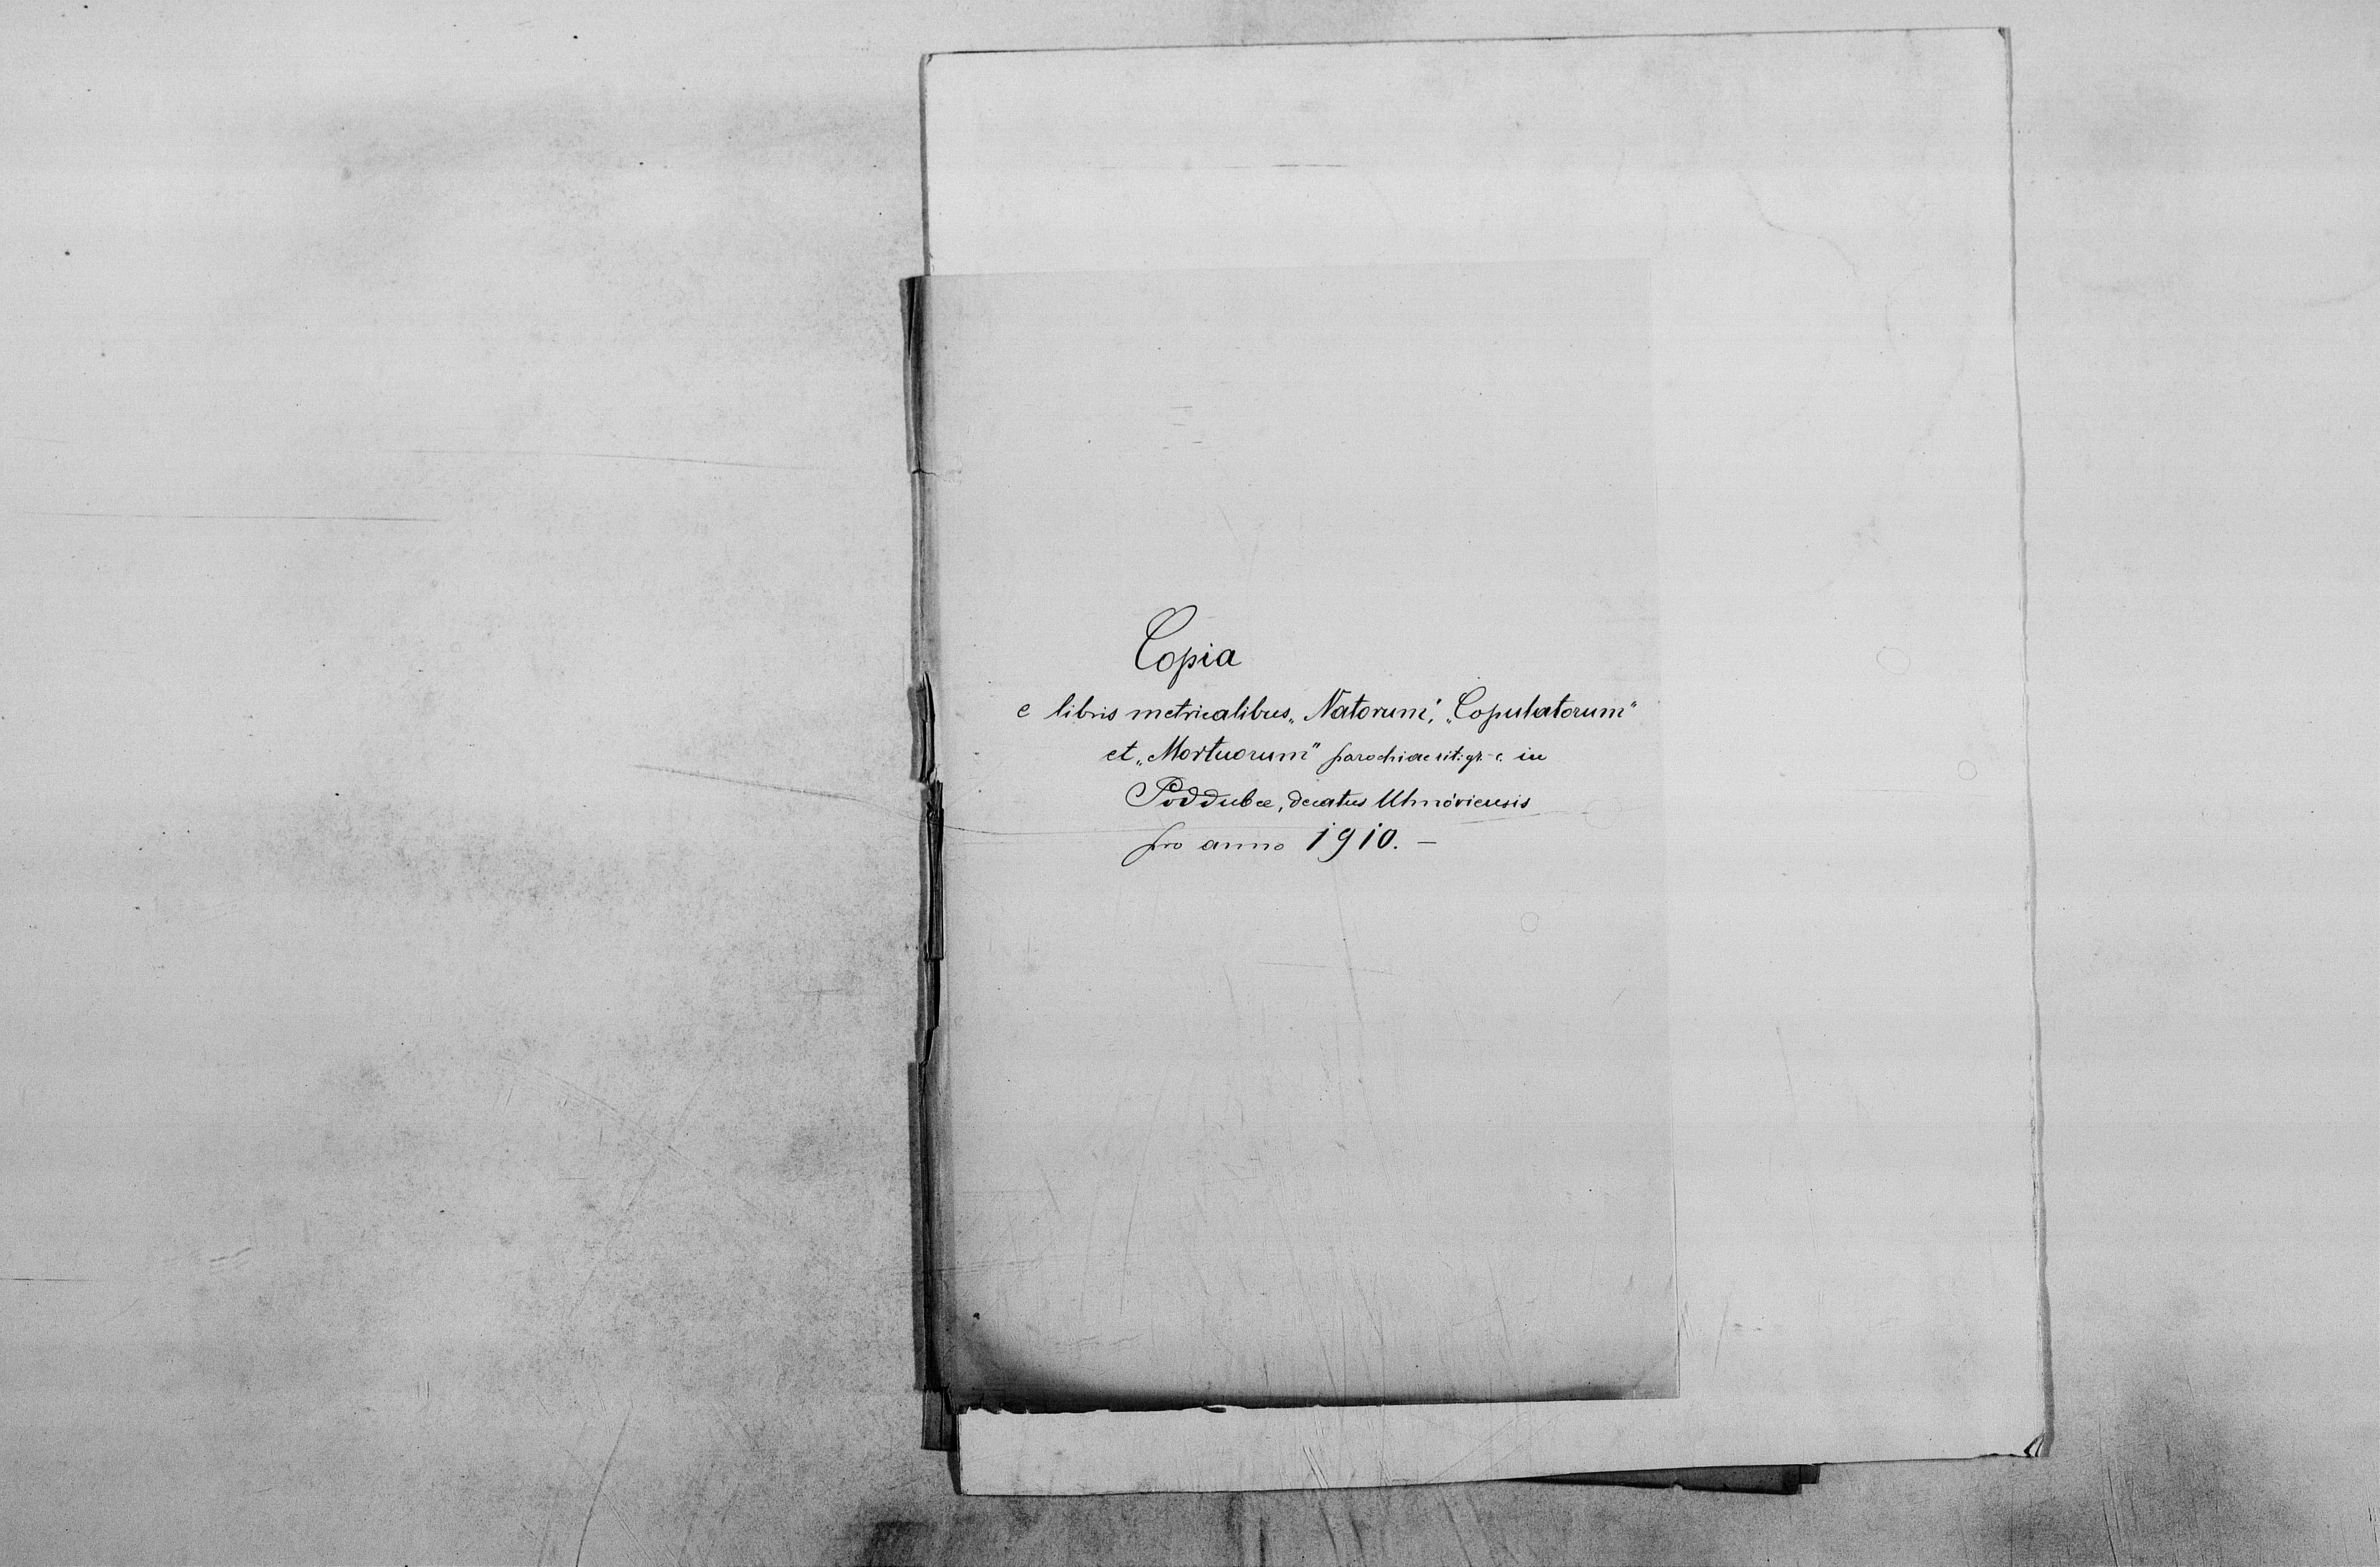 Copia
e libris metricalibus „Natorum”, „Copulatorum”
et „Mortuorum” parochiae rit: gr. c. in
Poddubce, decatus Uhnóviensis
pro anno 1910. —